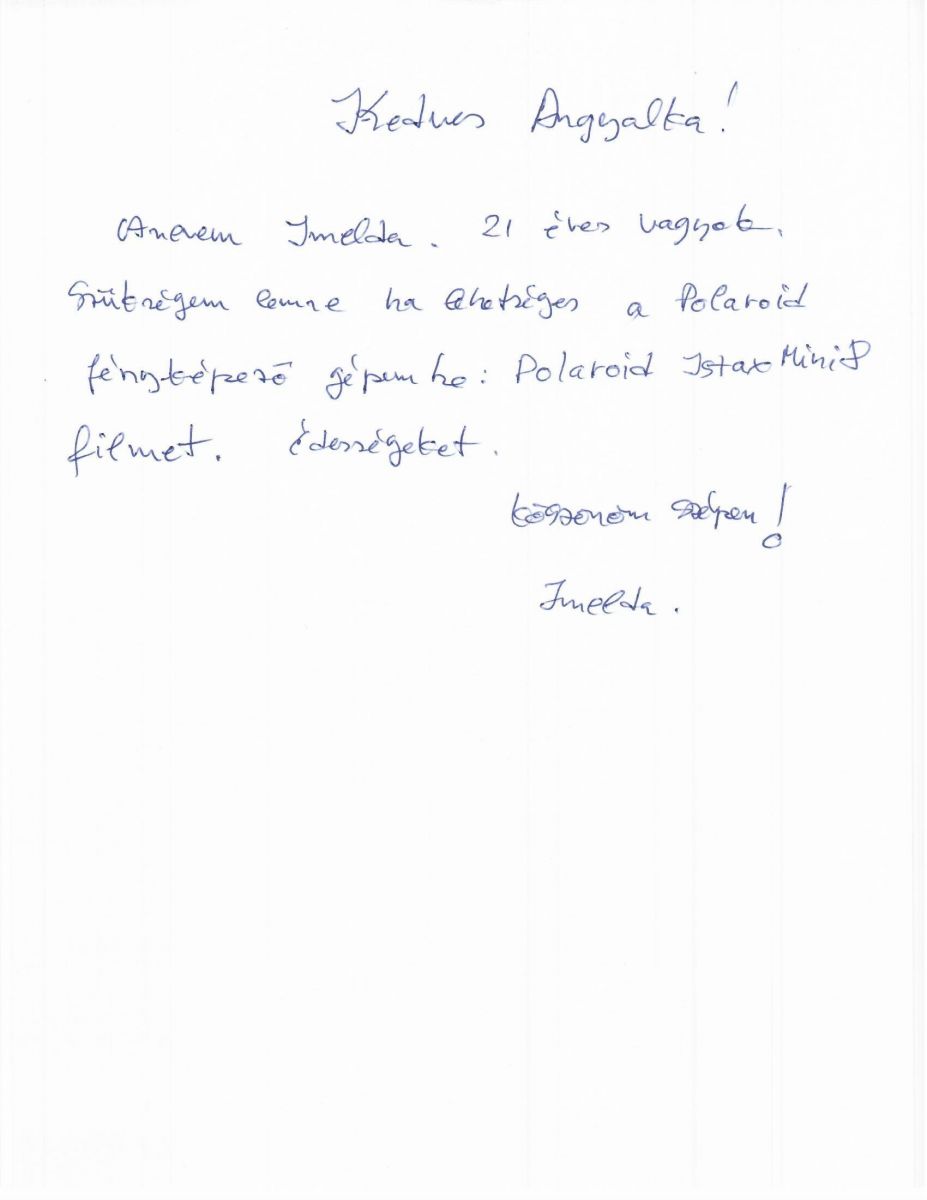 Kedves Angyalka!
Anevem Imelda. 21 éves vagyok.
Szükségem lenne ha lehetséges a Polaroid
fényképező gépemhe: Polaroid Istax Mini
filmet. Édességeket.
köszönöm szépen!
Imelda.